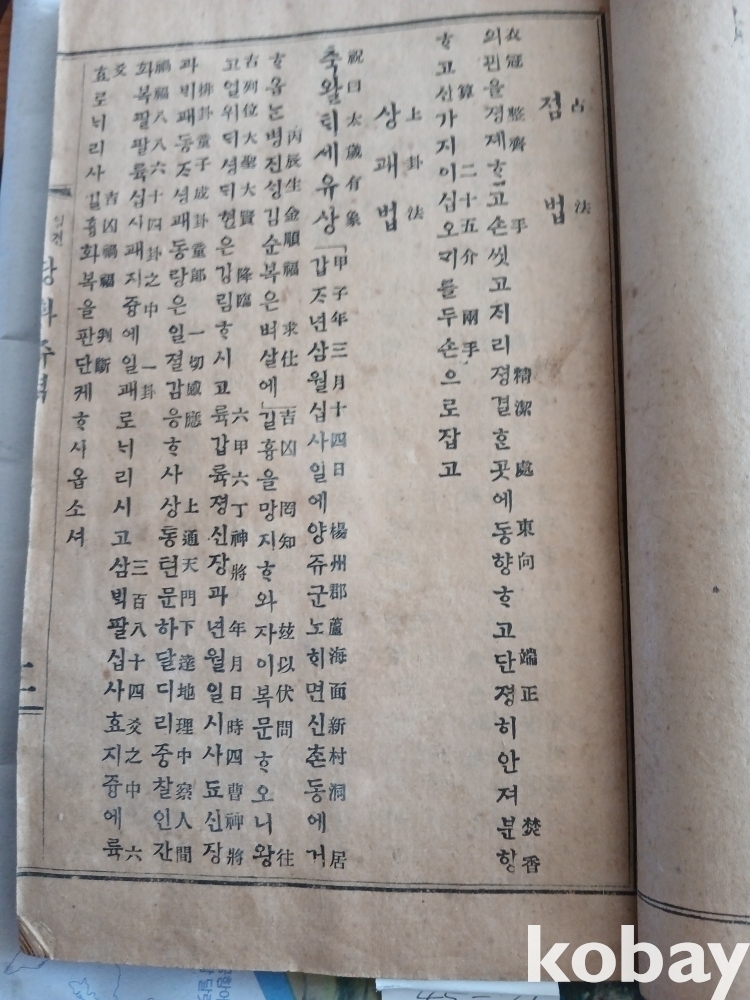 占法
졈법
衣冠 整齊 手 精潔 處 東向 端正 焚香
의관을졍제ᄒᆞ고손씻고저리졍결ᄒᆞᆫ곳에동향ᄒᆞ고단졍히안져분향
算 二十五介 兩手
ᄒᆞ고산가지이십오ᄀᆡ를두손으로잡고
上卦法
상괘법
祝曰太歲有象 甲子年三月十四日 楊州郡蘆海面新村洞 居
축왈ᄐᆡ세유상「갑ᄌᆞ년삼월십사일에양쥬군노ᄒᆡ면신촌동에거
丙辰生金順福 求仕 吉凶 罔知 玆以伏問 往
ᄒᆞ옵ᄂᆞᆫ병진ᄉᆡᆼ김순복은벼살에」길흉을망지ᄒᆞ와자이복문ᄒᆞ오니왕
古列位大聖大賢 降臨 六甲六丁神將 年月日時四曹神將
고열위ᄃᆡ셩ᄃᆡ현은강림ᄒᆞ시고륙갑륙졍신장과년월일시사됴신장
排卦童子成卦童郎 一切感應 上通天門下達地理中察人間
과ᄇᆡ괘동ᄌᆞ셩괘동랑은일졀감응ᄒᆞ사상통텬문하달디리중찰인간
禍福八八六十四卦之中 一卦 三百八十四爻之中 六
화복팔팔륙십사괘지즁에일괘로ᄂᆡ리시고삼ᄇᆡᆨ팔십사효지즁에륙
爻 吉凶禍福 判斷
효로ᄂᆡ리사길흉화복을판단케ᄒᆞ시옵소셔
kobay